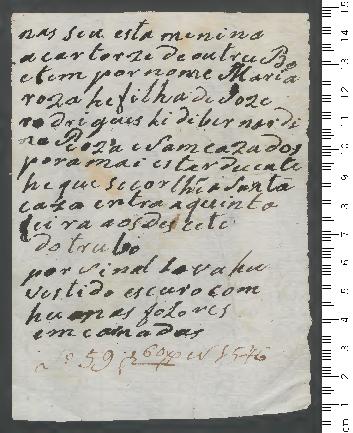 nas seu esta menina
a cartorze de outubro
e tem por nome Maria
roza he filha de Joze
rodrigues hi de bernardi
na Roza e sam cazados
por a mai estar duente
he que se corlhe a Santa
caza entra a quinta
feira aos des e ceti
dotrubo
por sinal leva hu
vestido escuro com
humas folores
emcarnadas
59